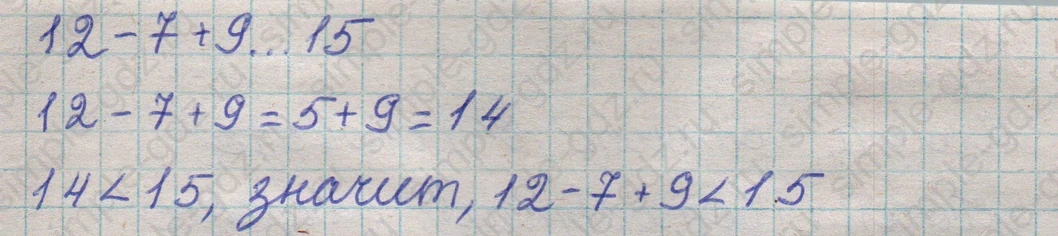 12 - 7 + 9...15
12 - 7 + 9 = 5 + 9 = 14
14 < 15, значит, 12 - 7 + 9 < 15
simple-gdz.ru